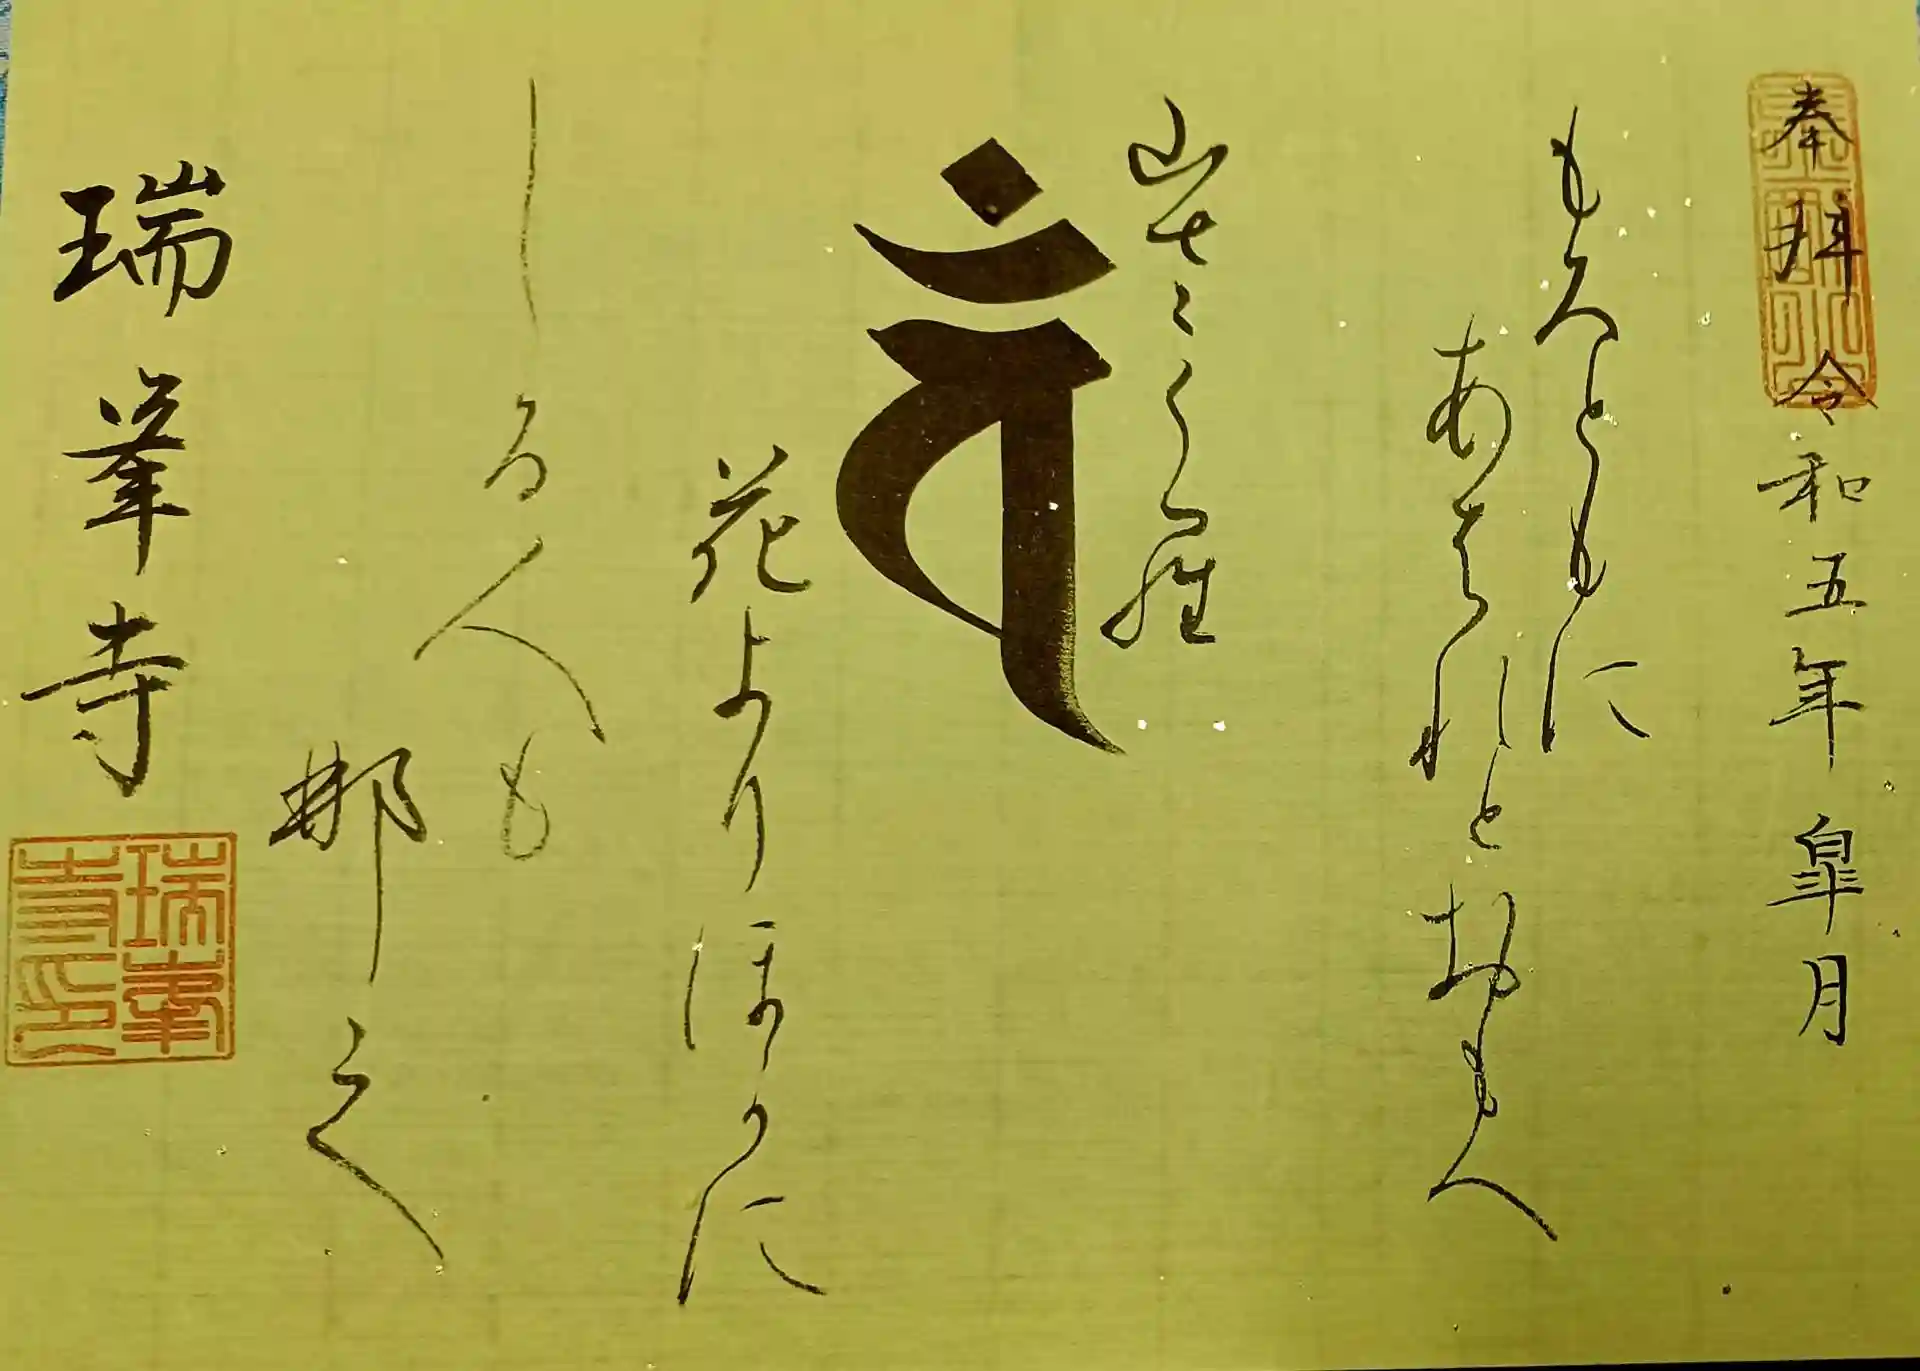 奉拝 令和五年皐月
もろともに
あはれとおもへ
山さくら
𑖪𑖽
花よりほかに
しる人も
那之
瑞峯寺
瑞峯寺印